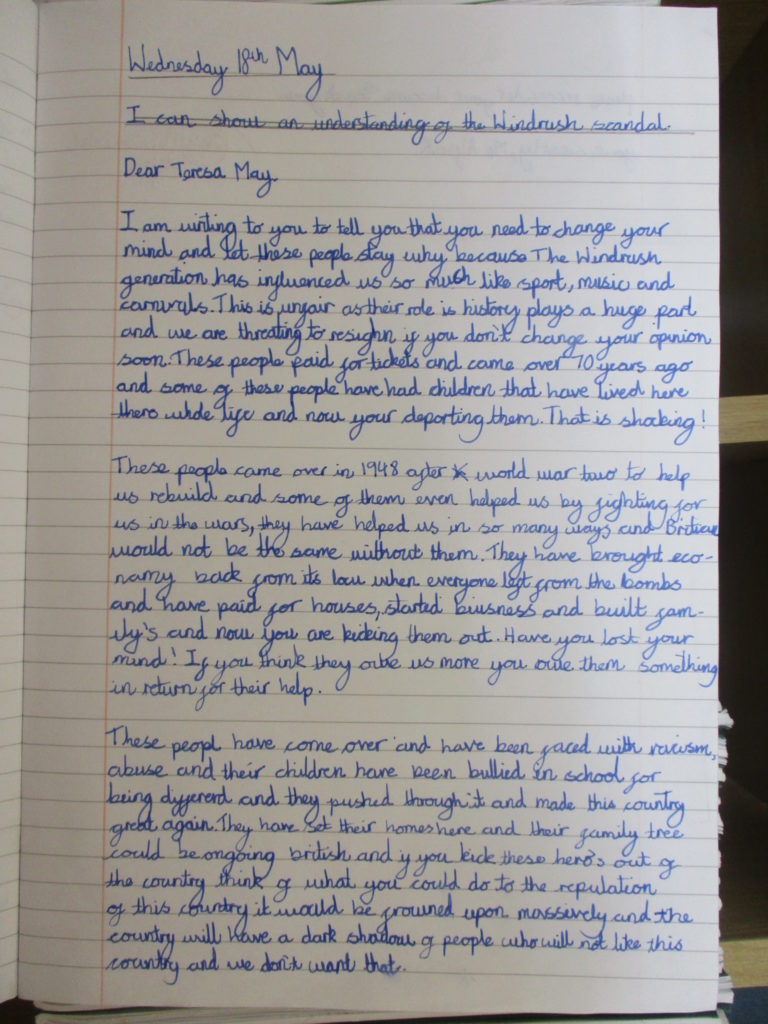 Wednesday 18th May
I can show an understanding of the Windrush scandal.
Dear Teresa May.
I am writing to you to tell you that you need to change your
mind and let these people stay why because The Windrush
generation has influenced us so much like sport, music and
carnivals. This is unfair as their role is history plays a huge part
and we are threating to resighn if you don't change your opinion
soon. These people paid for tickets and came over 70 years ago
and some of these people have had children that have lived here
there whole life and now your deporting them. That is shocking!
These people came over in 1948 after world war two to help
us rebuild and some of them even helped us by fighting for
us in the wars, they have helped us in so many ways and
would not be the same without them. They have brought eco-
namy back from its low when everyone left from the bombs
and have paid for houses, started biusness and built fam-
ily's and now you are kicking them out. Have you lost your
mind! If you think they owe us more you owe them something
in return for their help.
These peopl have come over and have been faced with racism,
abuse and their children have been bullied in school for
being differend and they pushed through it and made this country
great again. They have set their homes here and their family tree
could be ongoing british and if you kick these hero's out of
the country think of what you could do to the repulation
of this country it would be frowned upon massively and the
country will have a dark shadow of people who will not like this
country and we don't want that.